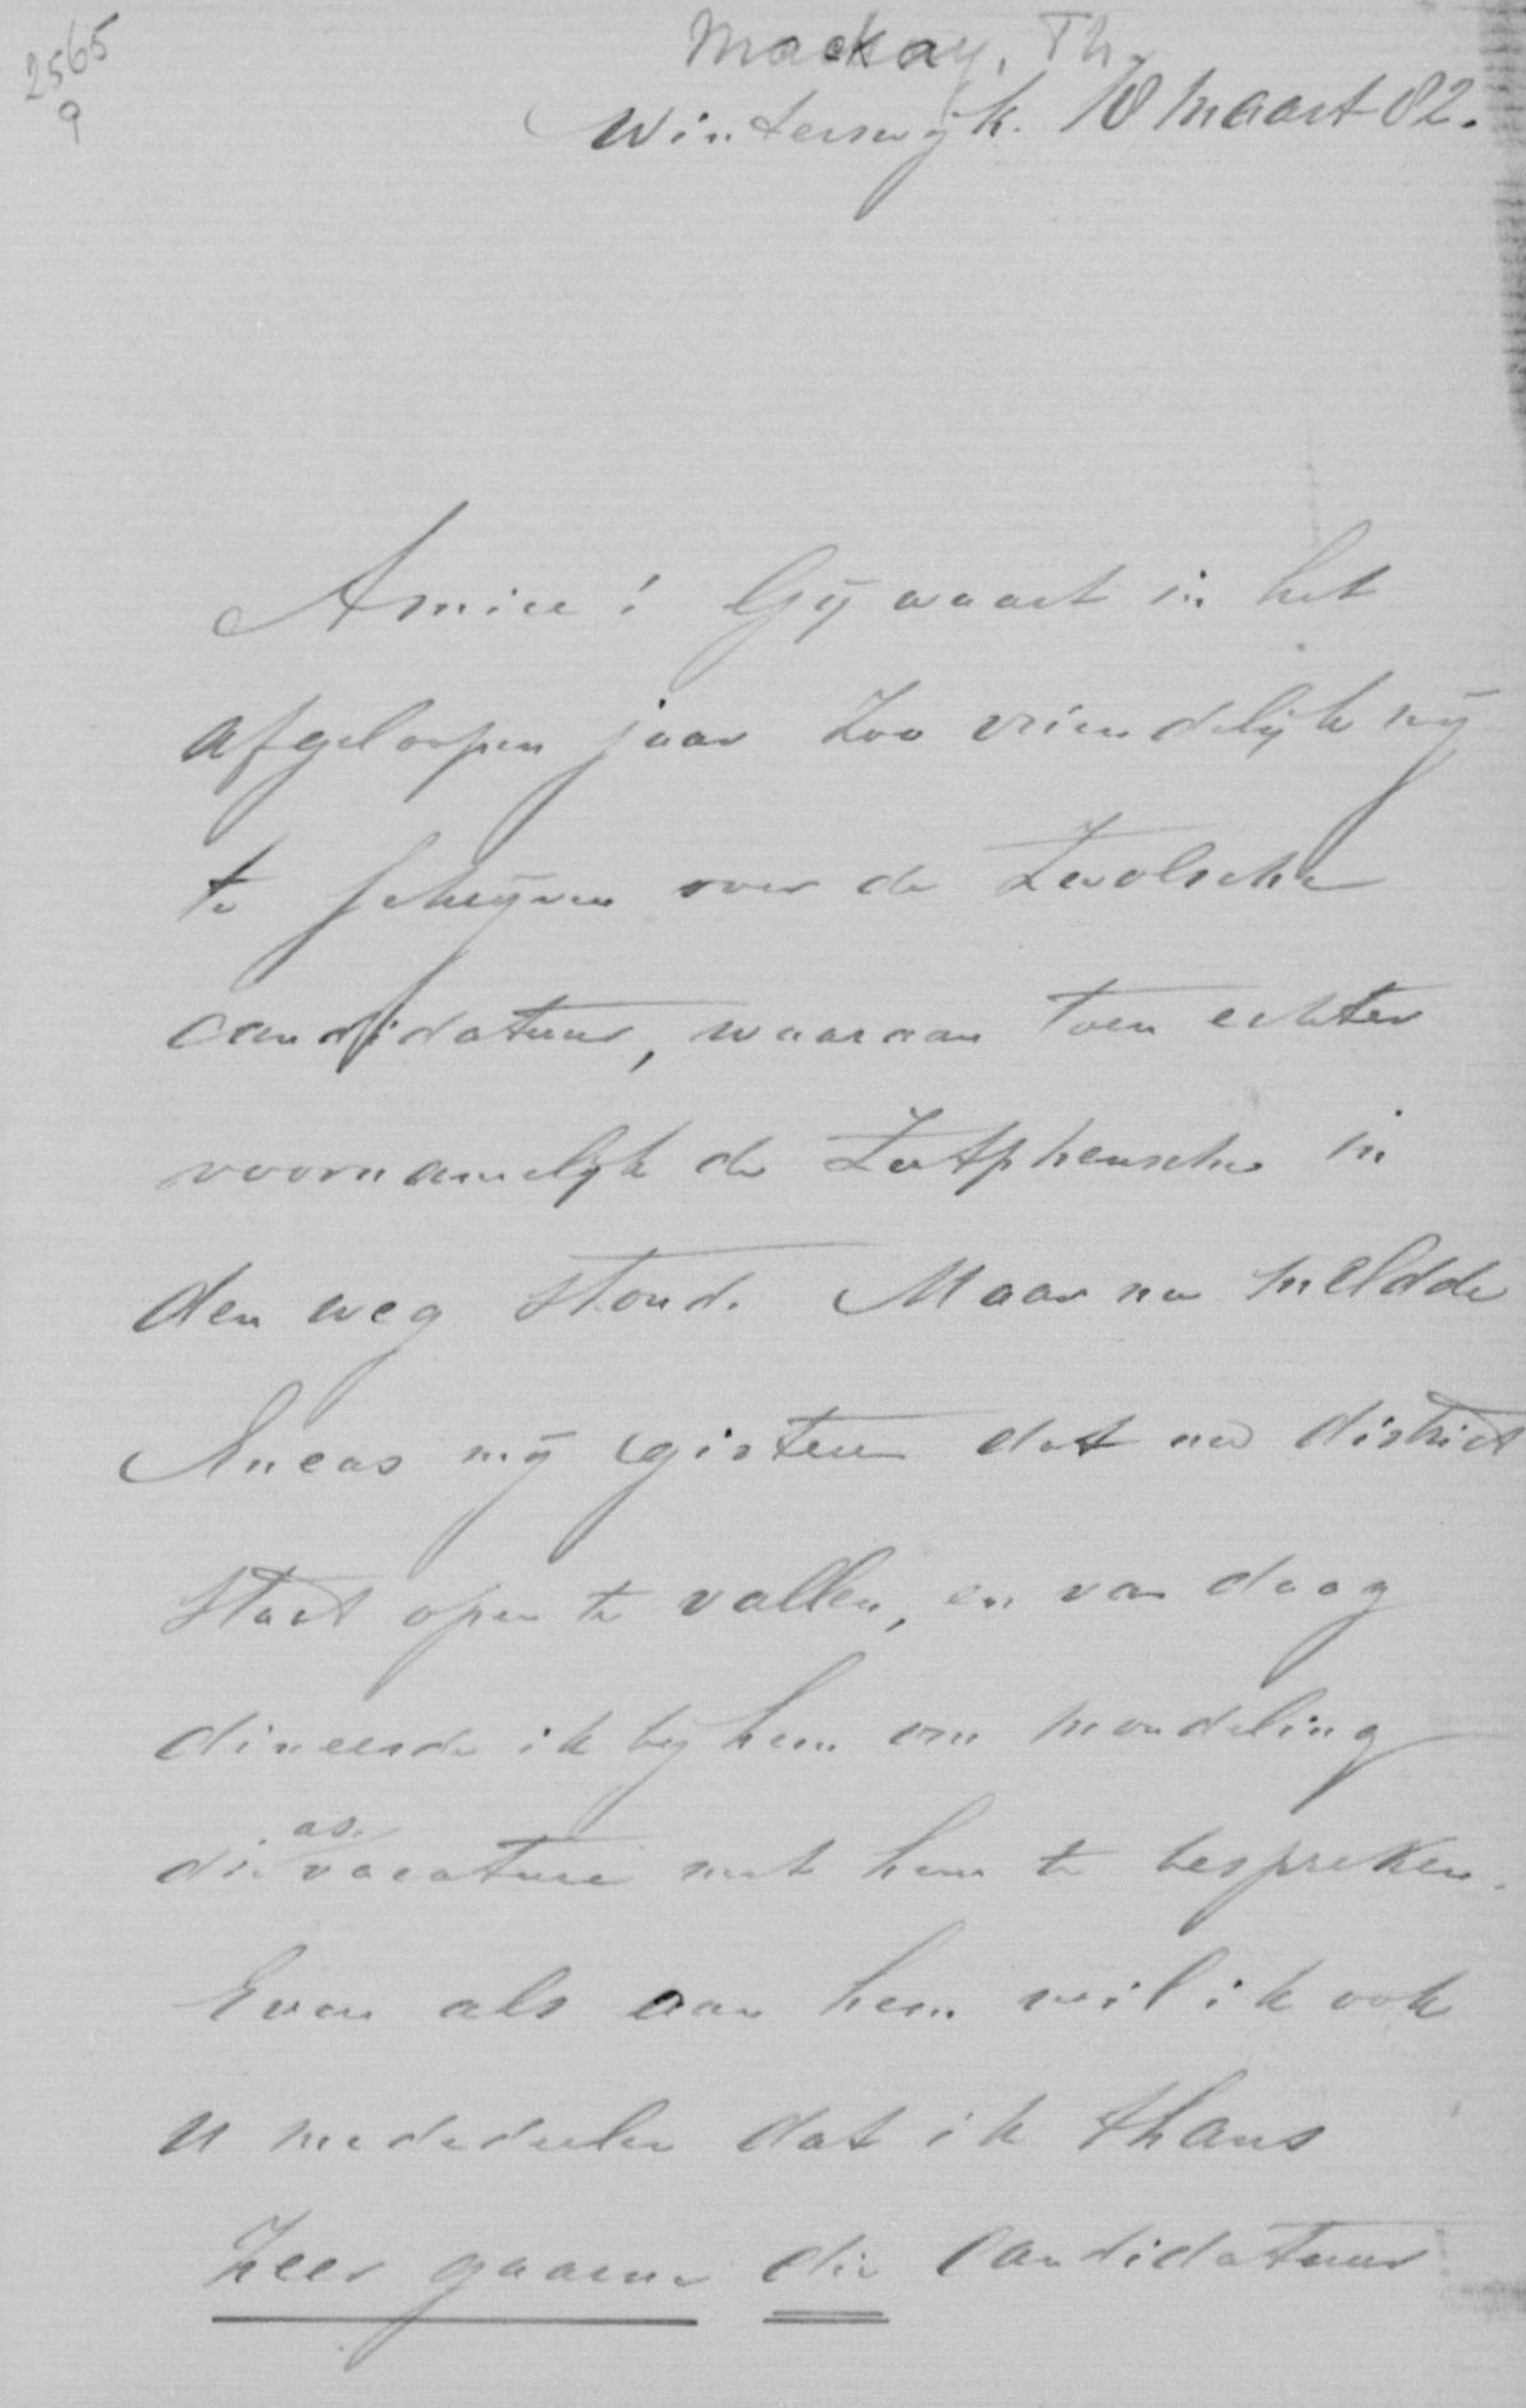 2565
9
Mackay, Th.
Winterswijk. 10 Maart 82.
Amice! Gij waart in het
afgeloopen jaar zoo vriendelijk mij
te schrijven over de Zwolsche
candidatuur, waaraan toen echter
voornamelijk de Zutphensche in
den weg stond. Maar nu meldde
Aneas mij gisteren dat uw district
staat open te vallen, en van daag
dineerde ik bij hem om mondeling
die as. vacature met hem te bespreken.
Even als aan hem wil ik ook
u mededeelen dat ik thans
zeer gaarne die candidatuur